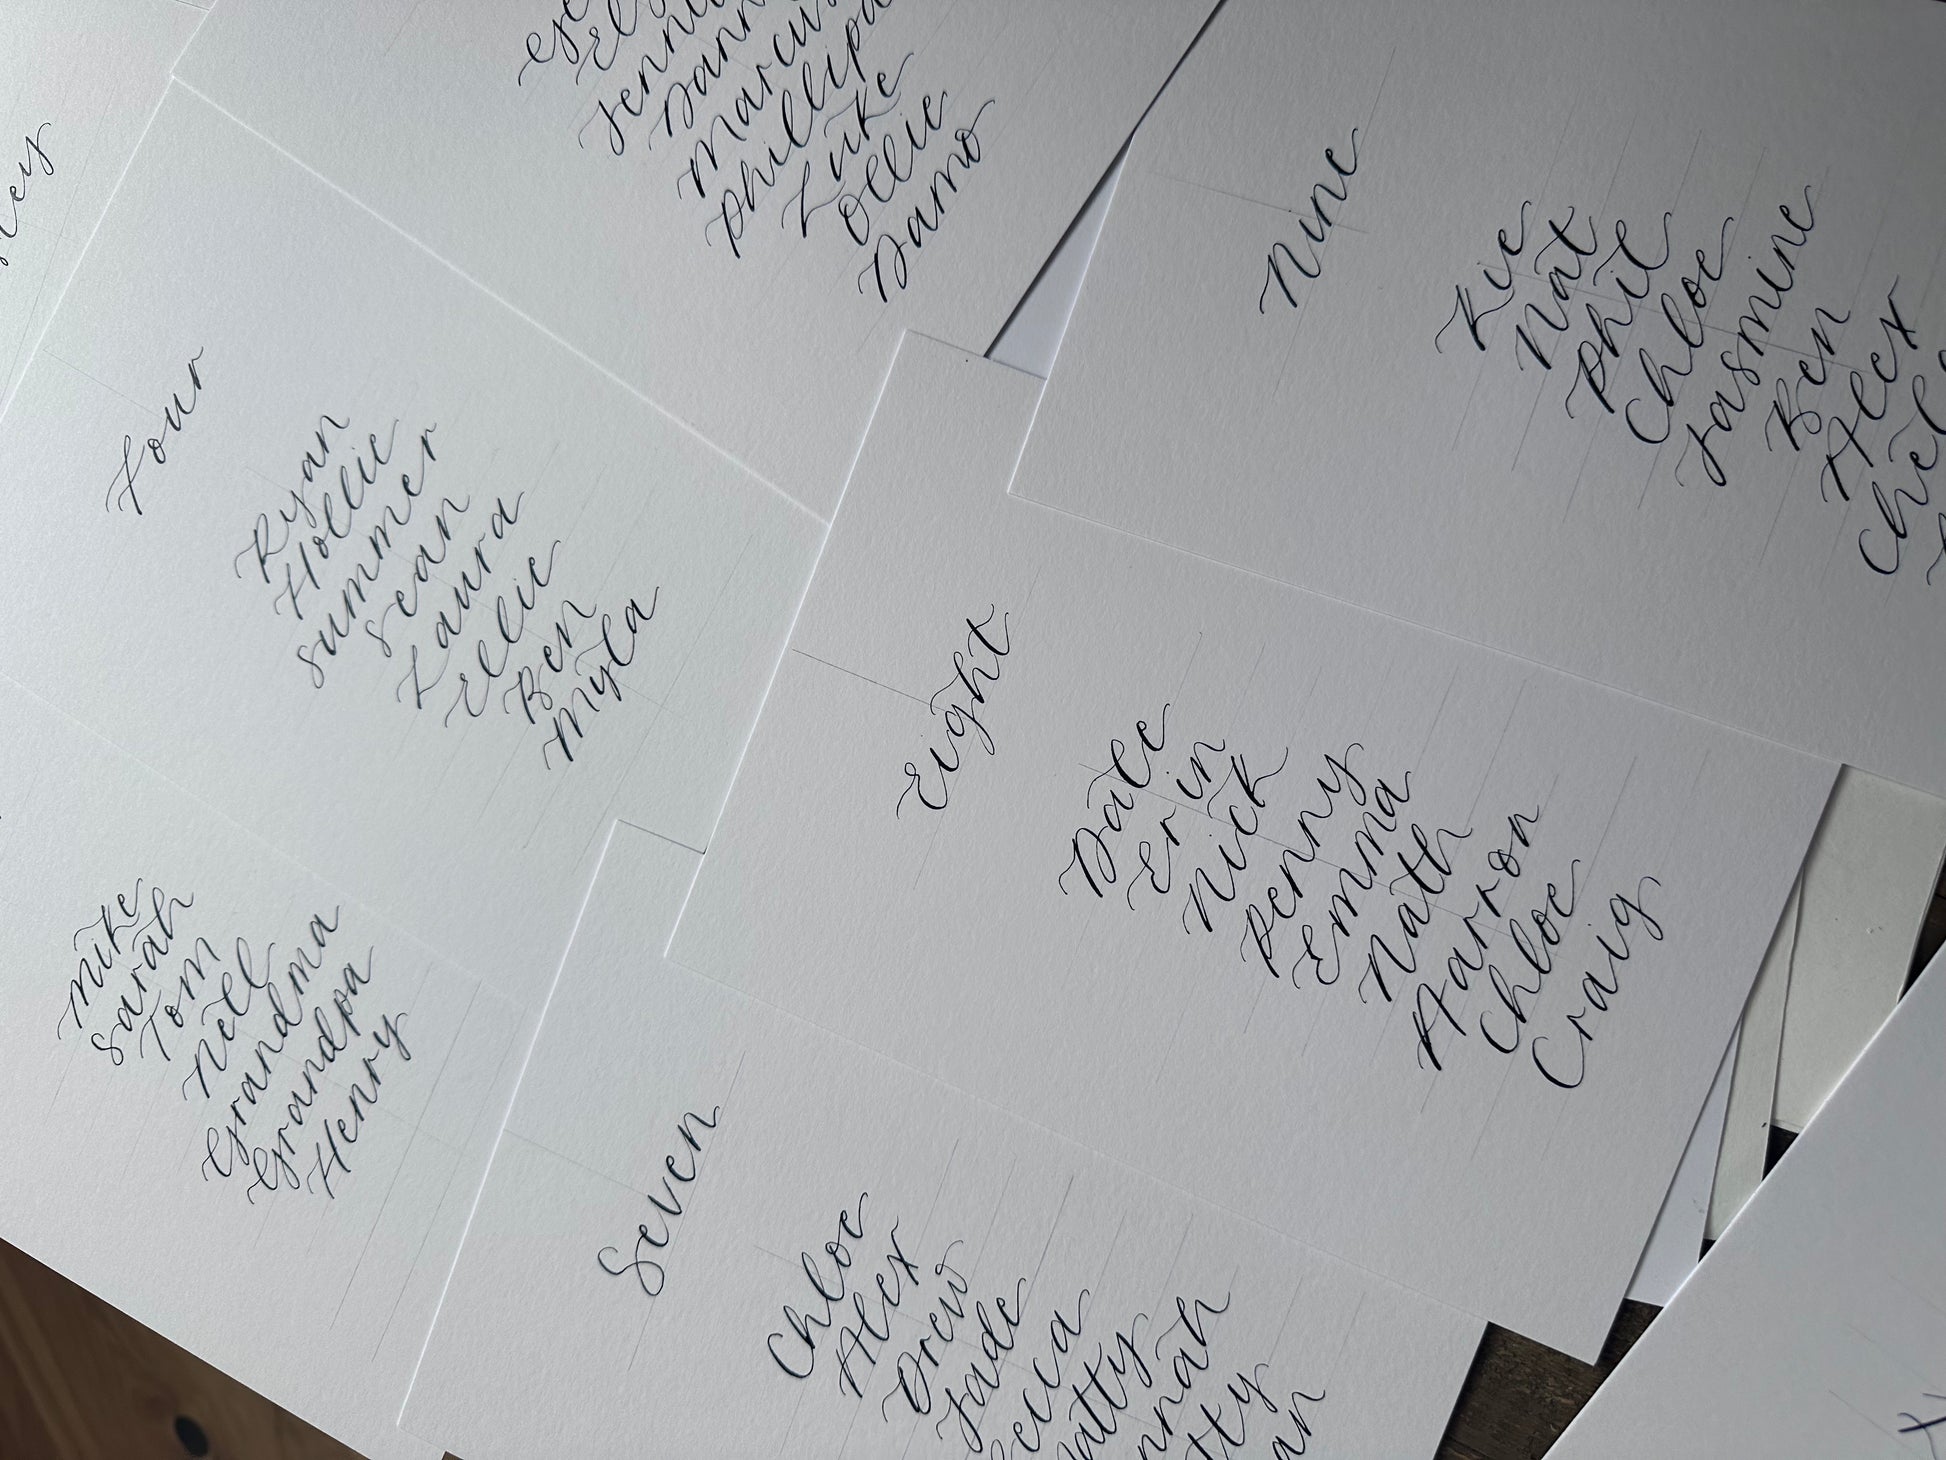 Jenni
Marcus
Phillipa
Luke
Ollie
Damo
Nine
Kie
Nat
Phil
Chloe
Jasmine
Ben
Alex
Four
Ryan
Hollie
Summer
Sean
Laura
Ellie
Ben
Myla
Eight
Dale
Erin
Nick
Penny
Emma
Nath
Aaron
Chloe
Craig
Mike
Sarah
Tom
Nell
Grandma
Grandpa
Henry
Seven
Chloe
Alex
Drew
Jade